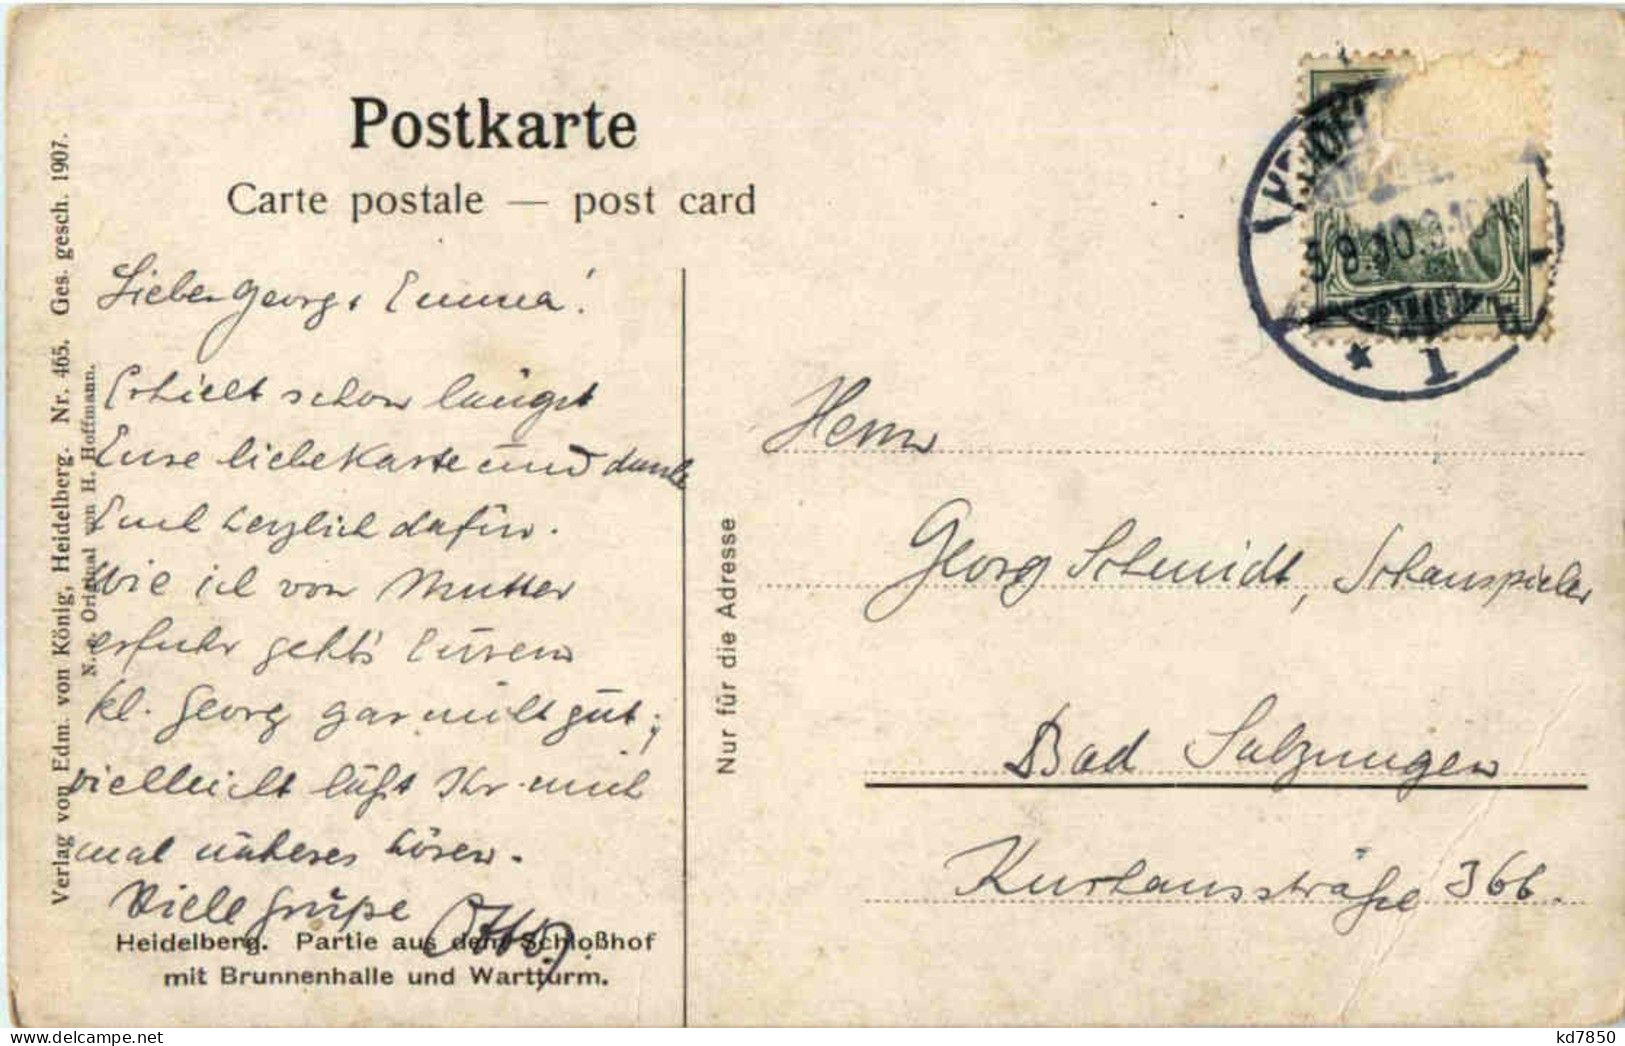 Postkarte
Carte postale — post card
Verlag von Edm. von König, Heidelberg. Nr. 465. Ges. gesch. 1907.
N. e. Original von H. Hoffmann.
Lieber Georg & Emma!
Erhielt schon längst
Eure liebe Karte und danke
Euch herzlich dafür.
Wie ich von Mutter
erfuhr geht's Eurem
kl. Georg gar nicht gut;
vielleicht laßt Ihr mich
mal näheres hören.
Viele Grüße Otto
Heidelberg. Partie aus dem Schloßhof
mit Brunnenhalle und Wartturm.
Nur für die Adresse
9.10
* 1
Herrn
Georg Schmidt, Schauspieler
Bad Salzungen
Kurhausstraße 36b.
delcampe.net
kd7850